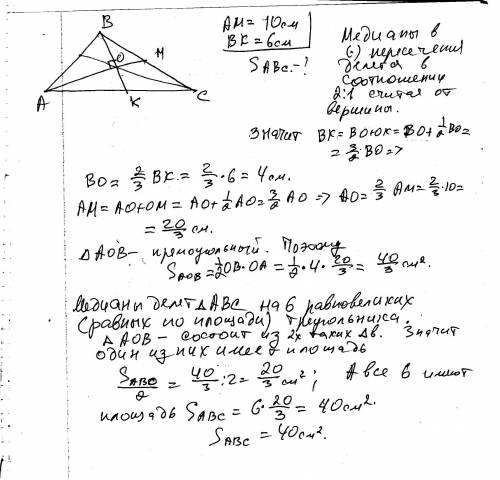 B
O
M
A
K
C
AM = 10 см
BK = 6 см
S ABC - ?
Медианы в
(·) пересечения
делятся в
соотношении
2:1 считая от
вершины.
Значит BK = BO + OK = BO + 1/2 BO =
= 3/2 BO =>
BO = 2/3 BK = 2/3 · 6 = 4 см.
AM = AO + OM = AO + 1/2 AO = 3/2 AO => AO = 2/3 AM = 2/3 · 10 =
= 20/3 см.
Δ AOB - прямоугольный. Поэтому
S AOB = 1/2 OB · OA = 1/2 · 4 · 20/3 = 40/3 см².
Медианы делят Δ ABC на 6 равновеликих
(равных по площади) треугольника.
Δ AOB - состоит из 2х таких Δв. Значит
один из них имеет площадь
S ABO / 2 = 40/3 : 2 = 20/3 см²; А все 6 имеют
площадь S ABC = 6 · 20/3 = 40 см².
S ABC = 40 см².